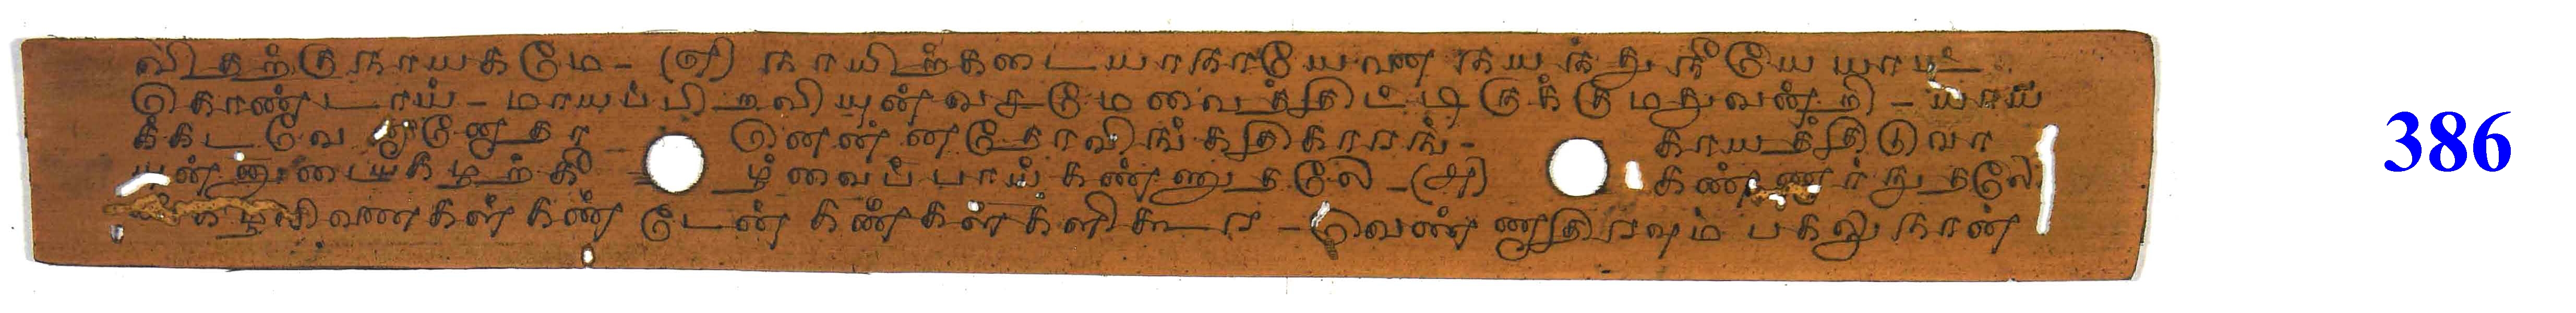 விதற்குநாயகமே - (௭) நாயிற்கடையாநாயேனை நயந்து நீயே யாட்
கொண்டாய் - மாயப்பிறவியுன்வசமேவைத்திட்டிருக்குமதுவன்றி - யாய
க்கடவே னானோதா னென்னதோவிங்கதிகாரங் - காயத்திடுவா
யுன்னுடையகழற்கீ ழ்வைப்பாய்கண்ணுதலே - (௮) கண்ணார்நுதலோ
ய்கழலிணைகள்கண்டேன் கண்கள்களிகூர - வெண்ணாதிரவும் பகலுநான்
386